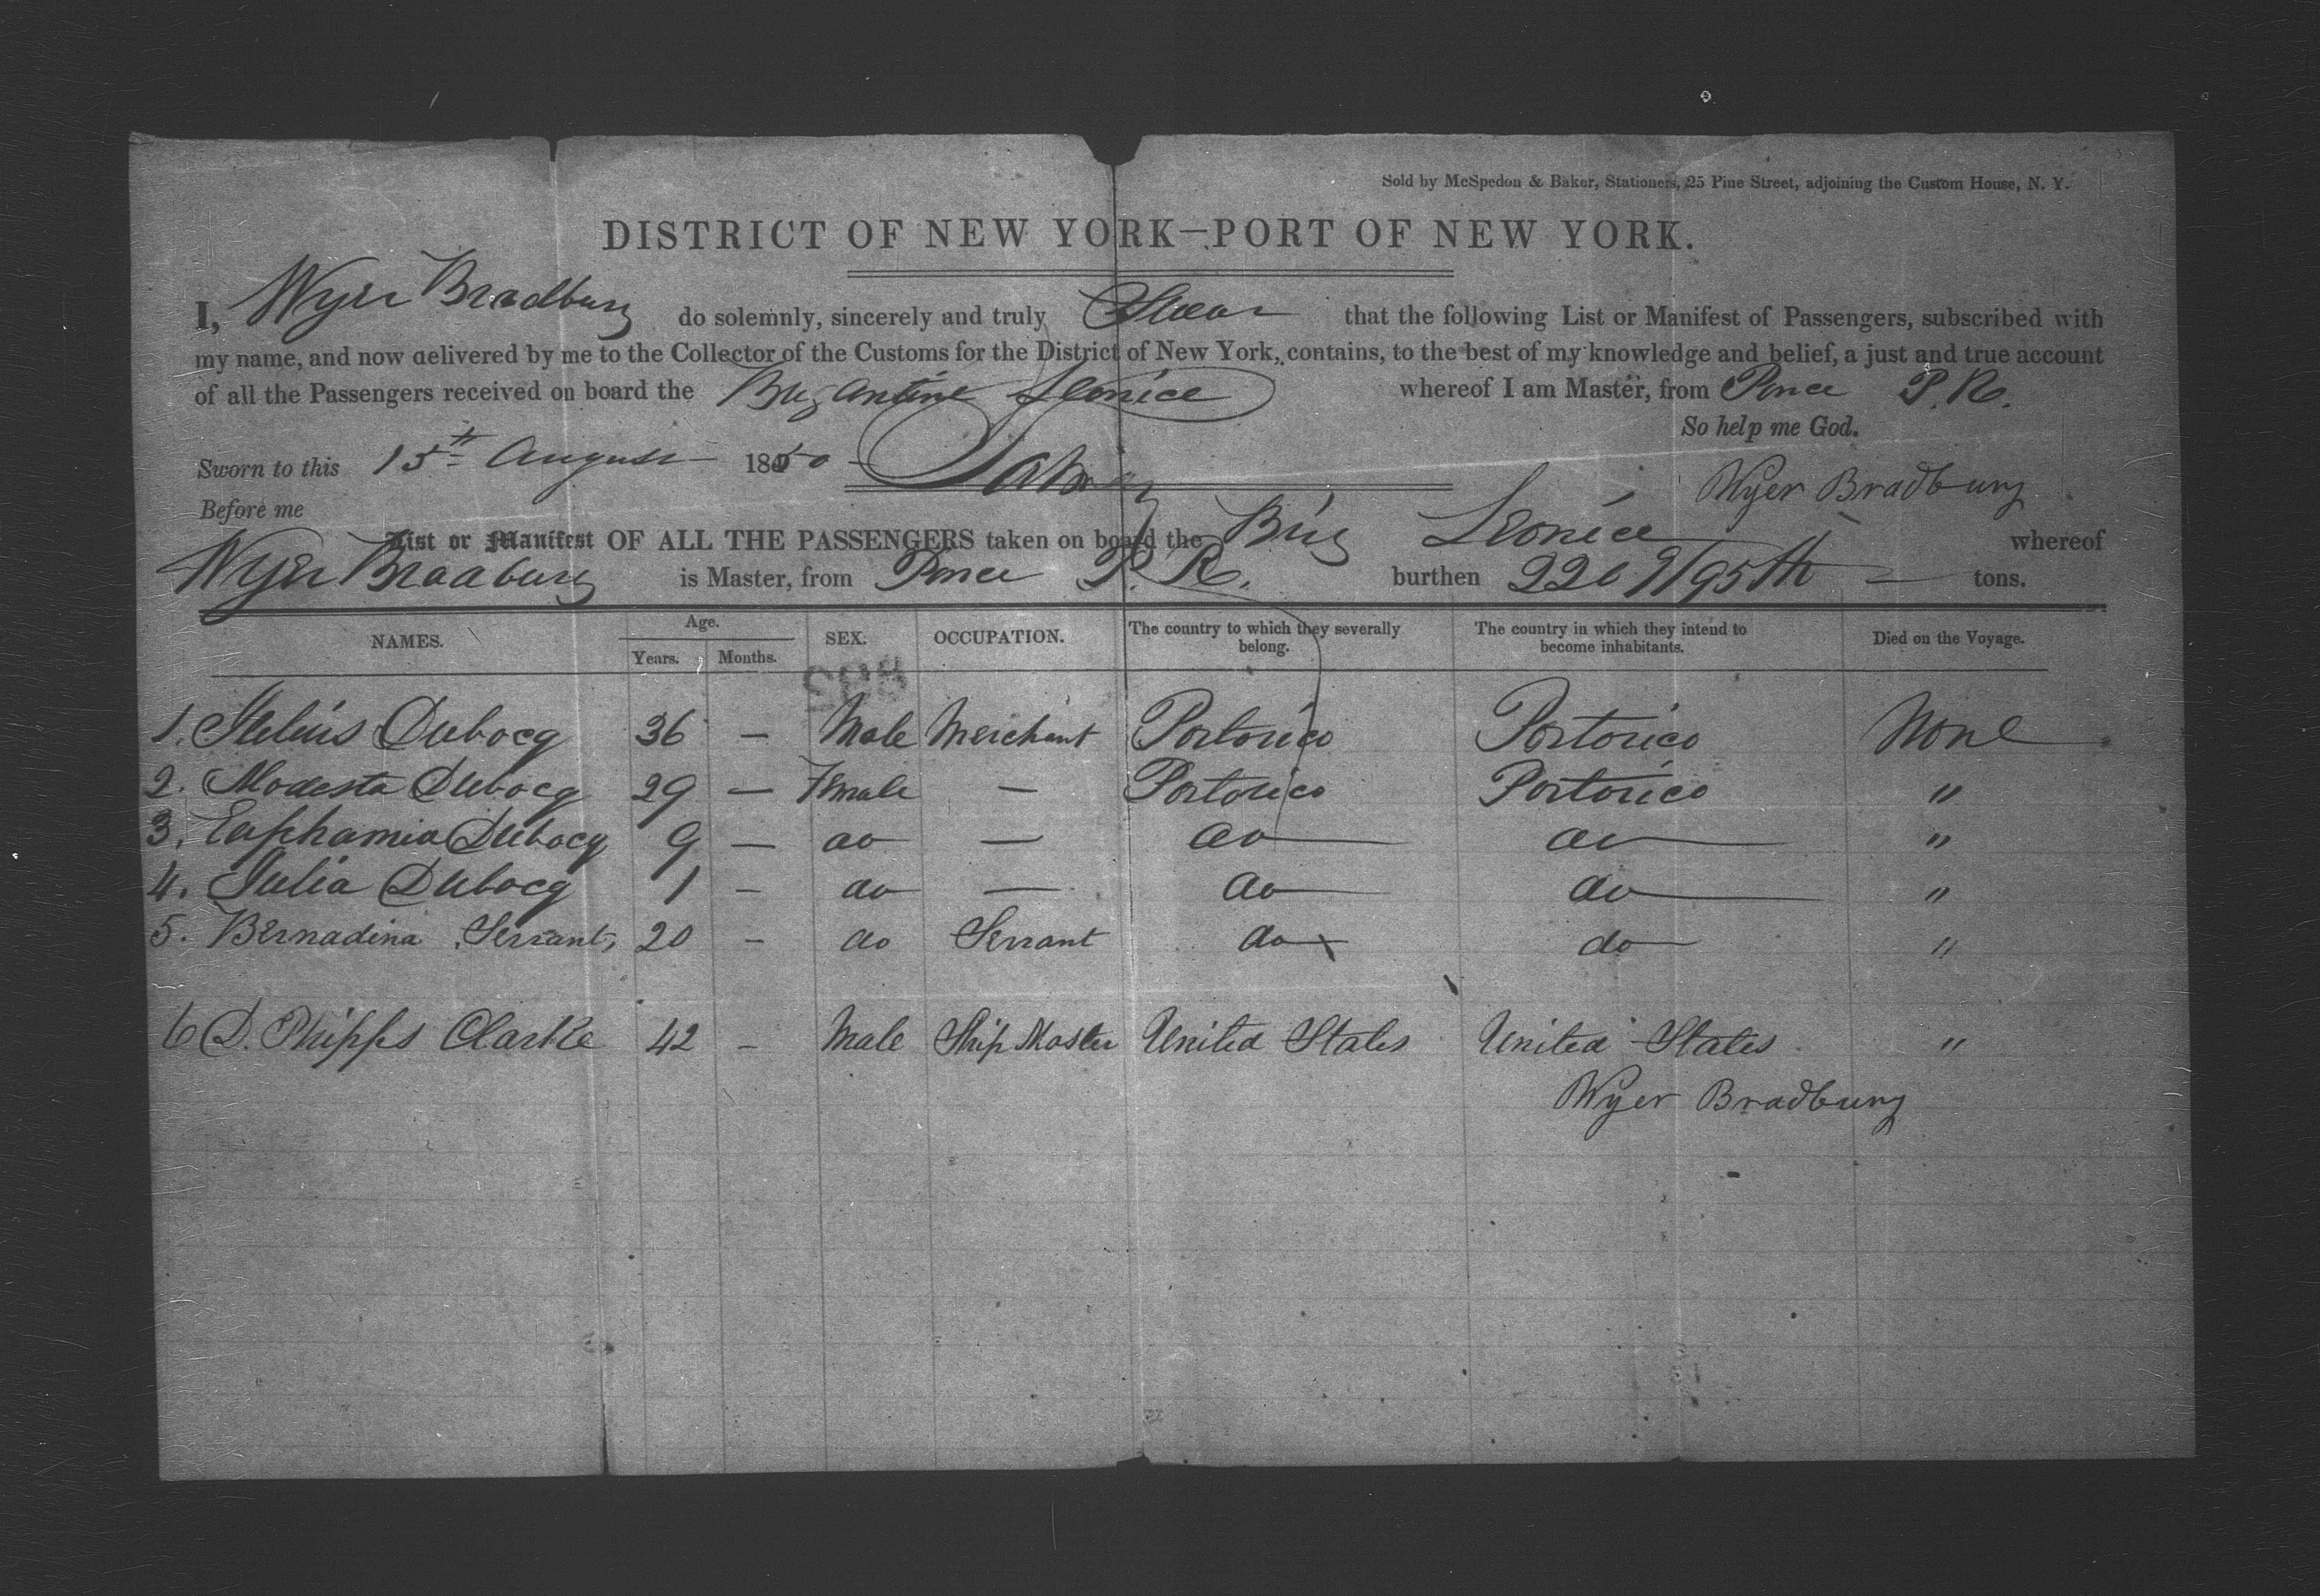 Sold by McSpedon & Baker, Stationers, 25 Pine Street, adjoining the Custom House, N. Y.
DISTRICT OF NEW YORK—PORT OF NEW YORK.
I, Wyer Bradbury do solemnly, sincerely and truly Swear that the following List or Manifest of Passengers, subscribed with
my name, and now delivered by me to the Collector of the Customs for the District of New York, contains, to the best of my knowledge and belief, a just and true account
of all the Passengers received on board the Brigantine Leonice whereof I am Master, from Ponce P. R.
So help me God.
Sworn to this 15th August 1850
Wyer Bradbury
Before me
List or Manifest OF ALL THE PASSENGERS taken on board the Brig Leonice whereof
Wyer Bradbury is Master, from Ponce P. R. burthen 220 9/95th tons.
NAMES. Age. Years. Months. SEX. OCCUPATION. The country to which they severally belong. The country in which they intend to become inhabitants. Died on the Voyage.
1. Julius Dubocq 36 — Male Merchant Portorico Portorico None
2. Modesta Dubocq 29 — Female — Portorico Portorico "
3. Euphamia Dubocq 9 — do — do do "
4. Julia Dubocq 1 — do — do do "
5. Bernadina Servant, 20 — do Servant do do "
6 D. Phipps Clarke 42 — Male Ship Master United States United States "
Wyer Bradbury